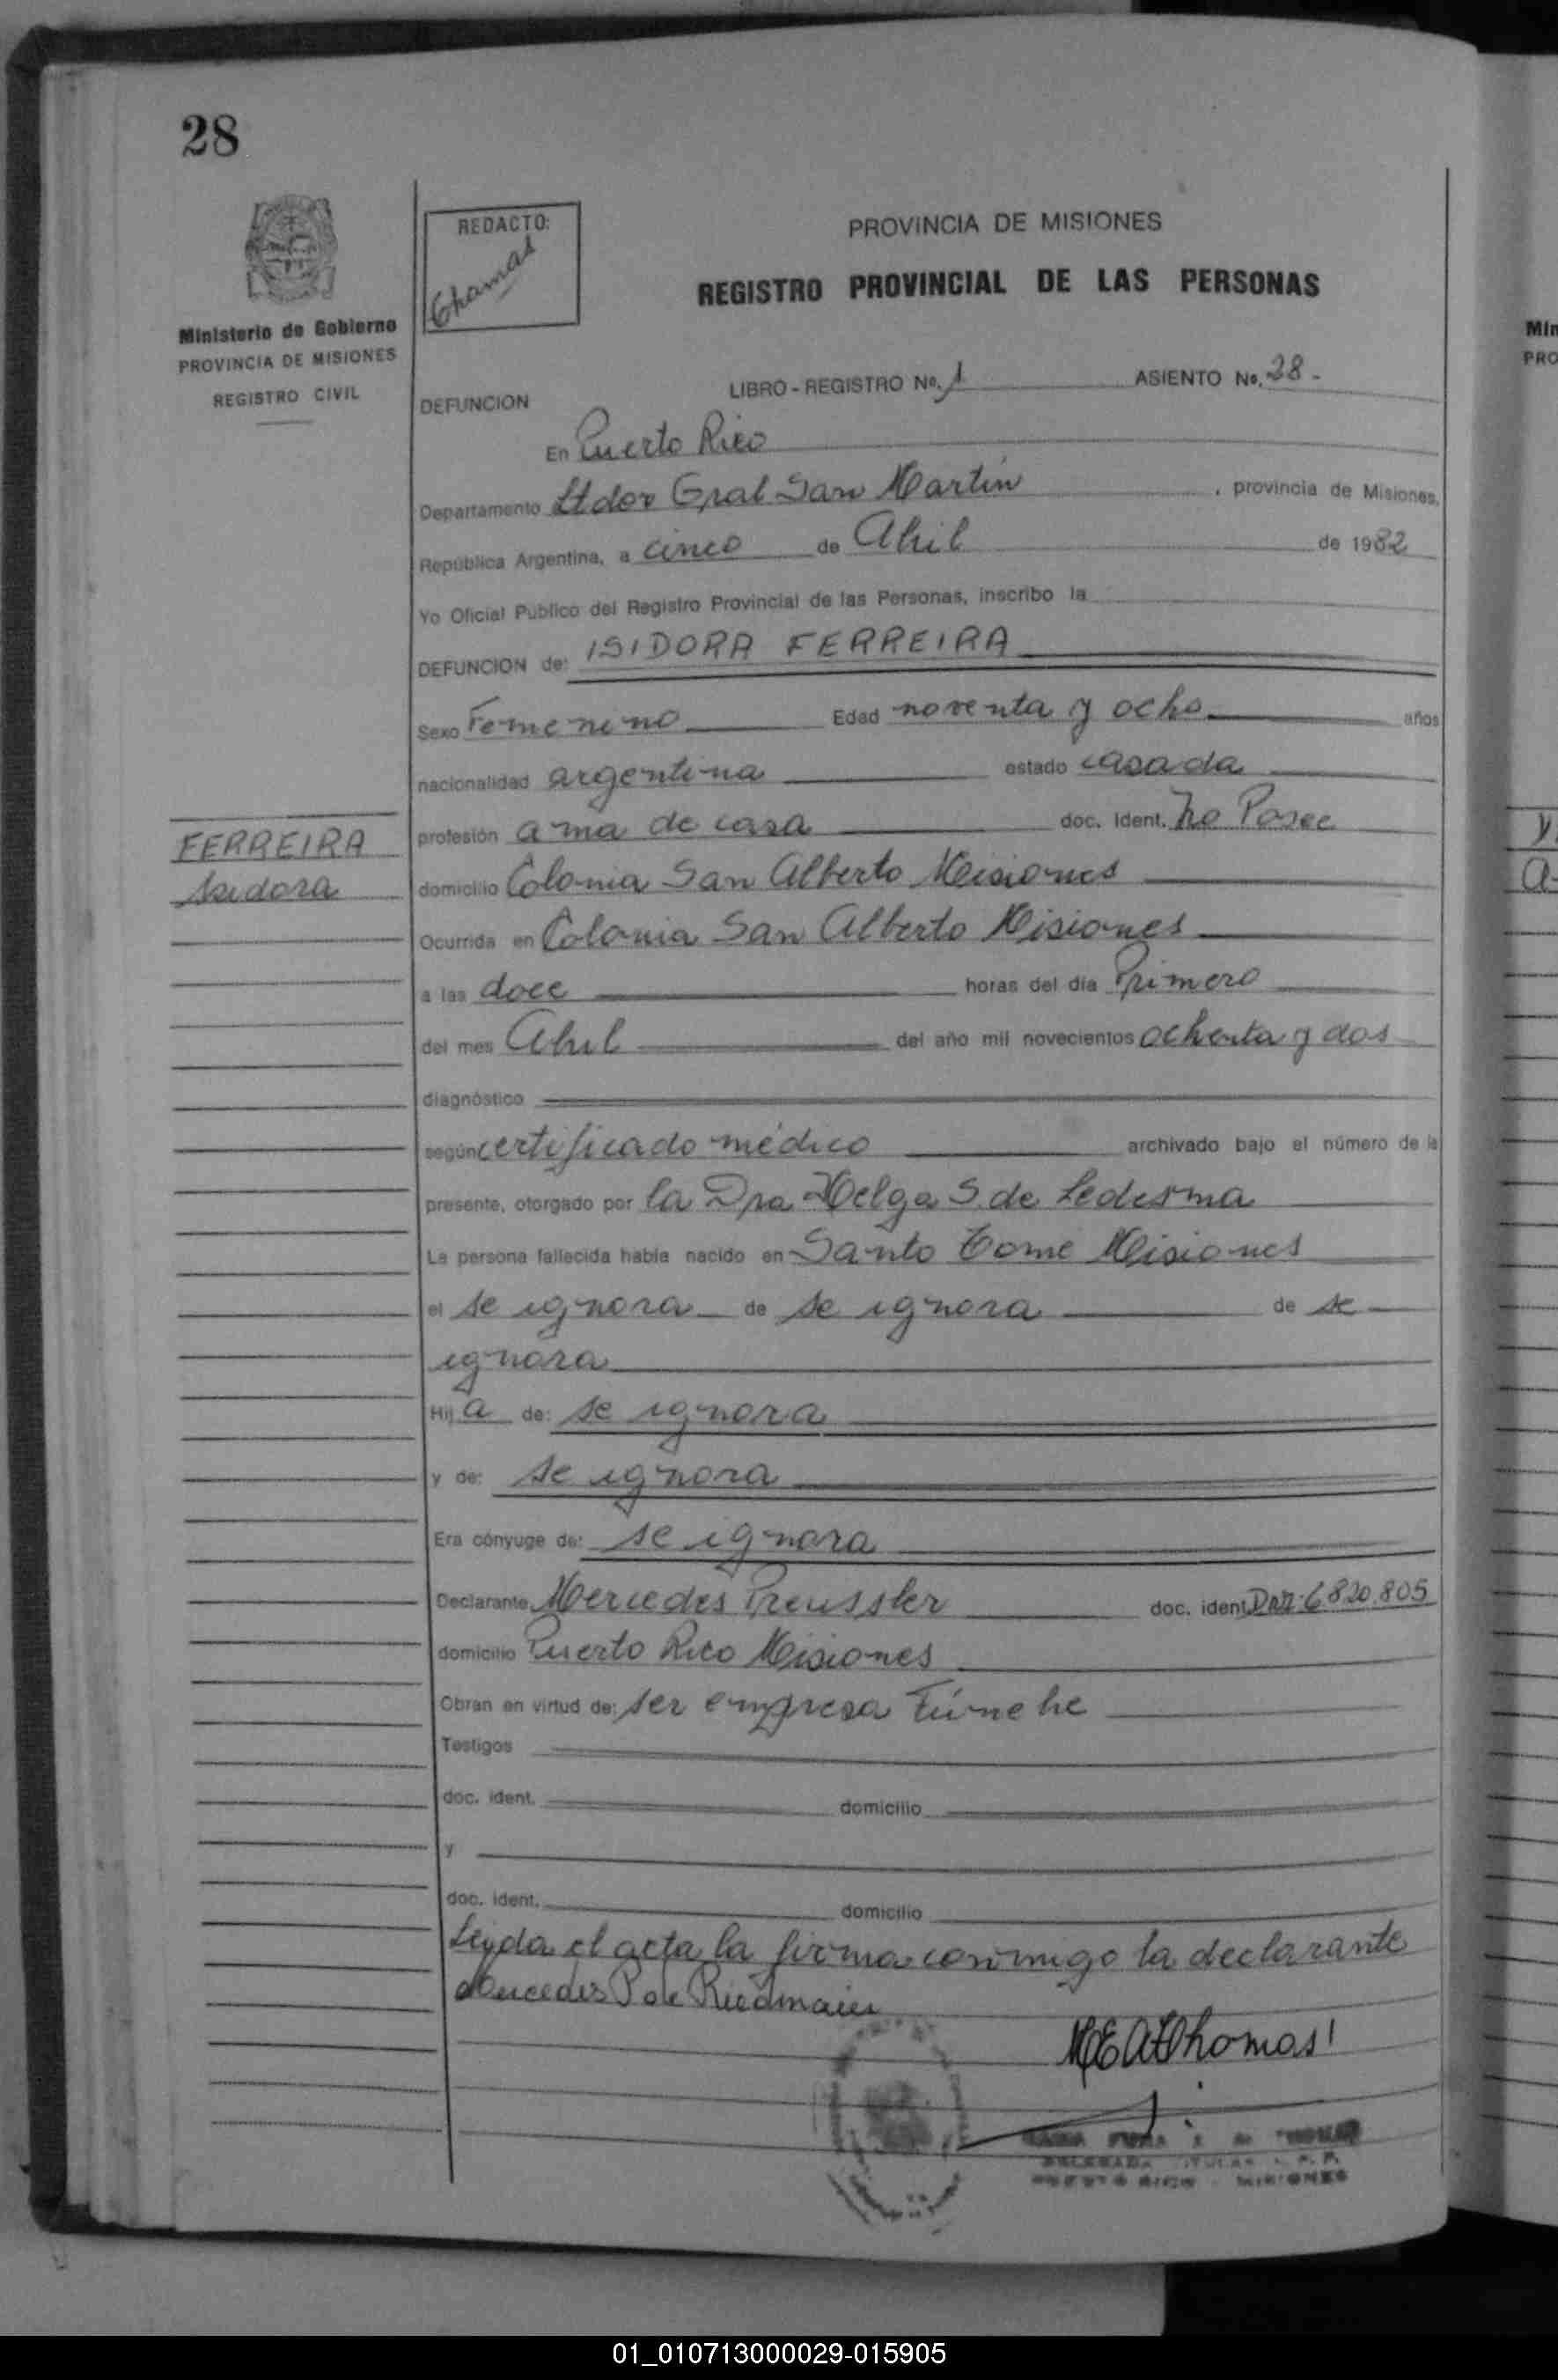 28
REDACTO:
Thomas
Ministerio de Gobierno
PROVINCIA DE MISIONES
REGISTRO CIVIL
PROVINCIA DE MISIONES
REGISTRO PROVINCIAL DE LAS PERSONAS
DEFUNCION LIBRO - REGISTRO No. 1 ASIENTO No. 28 -
En Puerto Rico
Departamento Ltdor Gral San Martín , provincia de Misiones,
República Argentina, a cinco de Abril de 1982
Yo Oficial Publico del Registro Provincial de las Personas, inscribo la
DEFUNCION de: ISIDORA FERREIRA
Sexo Femenino Edad noventa y ocho años
nacionalidad argentina estado casada
profesión ama de casa doc. Ident. No Posee
FERREIRA
Isidora
domicilio Colonia San Alberto Misiones
Ocurrida en Colonia San Alberto Misiones
a las doce horas del día Primero
del mes Abril del año mil novecientos ochenta y dos
diagnóstico
según certificado médico archivado bajo el número de la
presente, otorgado por la Dra Helga S. de Ledesma
La persona fallecida había nacido en Santo Tomé Misiones
el se ignora de se ignora de se
ignora
Hij a de: se ignora
y de: se ignora
Era cónyuge de: se ignora
Declarante Mercedes Preussler doc. ident. DNI. 6.820.805
domicilio Puerto Rico Misiones
Obran en virtud de: ser empresa Fúnebre
Testigos
doc. ident. domicilio
y
doc. ident. domicilio
Leyda el acta la firma conmigo la declarante
Mercedes P de Riedmaier
M E A Thomas
PUERTO RICO - MISIONES
Min
PRO
01_010713000029-015905